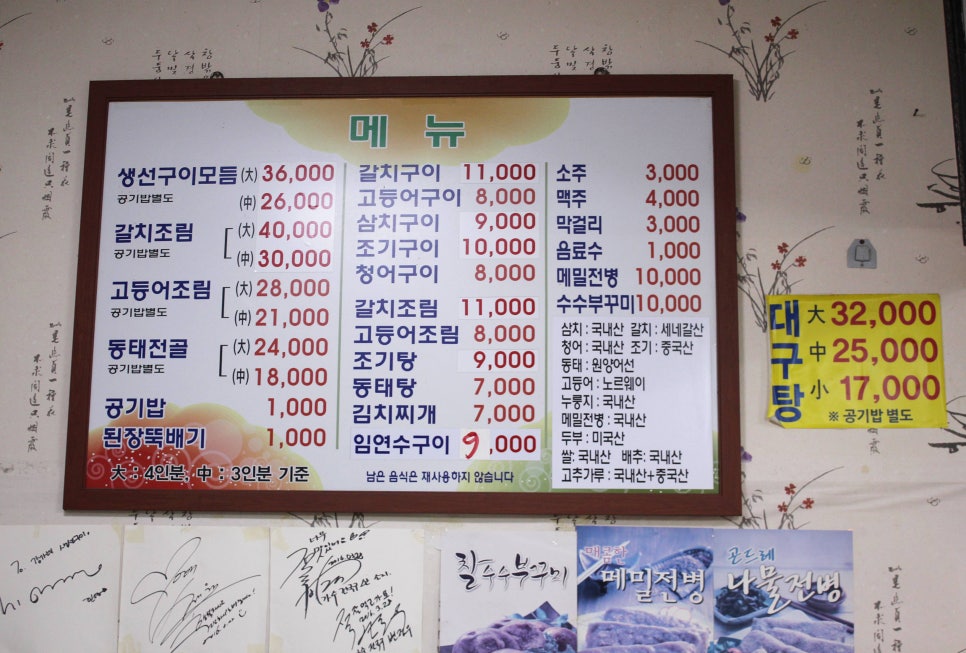 메 뉴
생선구이모듬 (大) 36,000
공기밥별도 (中) 26,000
갈치조림 (大) 40,000
공기밥별도 (中) 30,000
고등어조림 (大) 28,000
공기밥별도 (中) 21,000
동태전골 (大) 24,000
공기밥별도 (中) 18,000
공기밥 1,000
된장뚝배기 1,000
大 : 4인분, 中 : 3인분 기준
갈치구이 11,000
고등어구이 8,000
삼치구이 9,000
조기구이 10,000
청어구이 8,000
갈치조림 11,000
고등어조림 8,000
조기탕 9,000
동태탕 7,000
김치찌개 7,000
임연수구이 9,000
남은 음식은 재사용하지 않습니다
소주 3,000
맥주 4,000
막걸리 3,000
음료수 1,000
메밀전병 10,000
수수부꾸미 10,000
삼치 : 국내산 갈치 : 세네갈산
청어 : 국내산 조기 : 중국산
동태 : 원양어선
고등어 : 노르웨이
누룽지 : 국내산
메밀전병 : 국내산
두부 : 미국산
쌀: 국내산 배추: 국내산
고추가루 : 국내산+중국산
대구탕
大 32,000
中 25,000
小 17,000
※ 공기밥 별도
찰수수부꾸미
매콤한
메밀전병
곤드레
나물전병